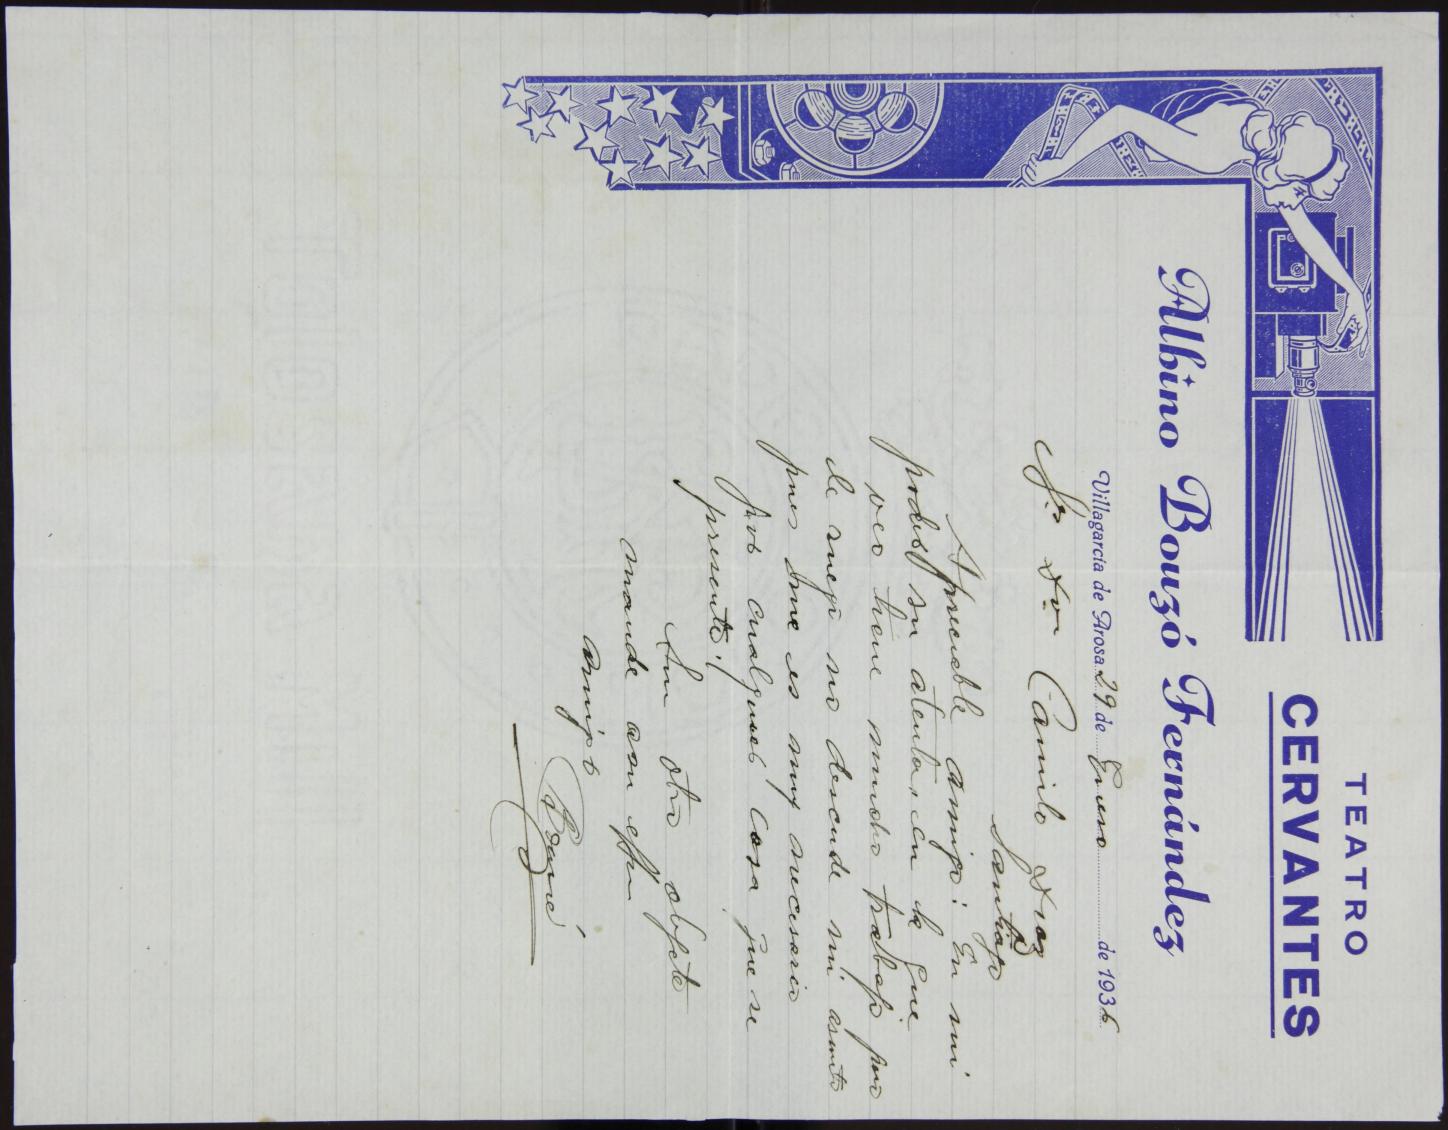 TEATRO
CERVANTES
Albino Bouzó Fernández
Villagarcía de Arosa 29 de Enero de 1936
Sr. Dn Camilo Diaz
Santiago
Apreciable amigo: En mi
poder su atenta, en la que
veo tiene mucho trabajo pero
le ruego no descuide mi asunto
pues me es muy necesario
por cualquier cosa que se
presente.
Sin otro objeto
mande a su affmo
amigo